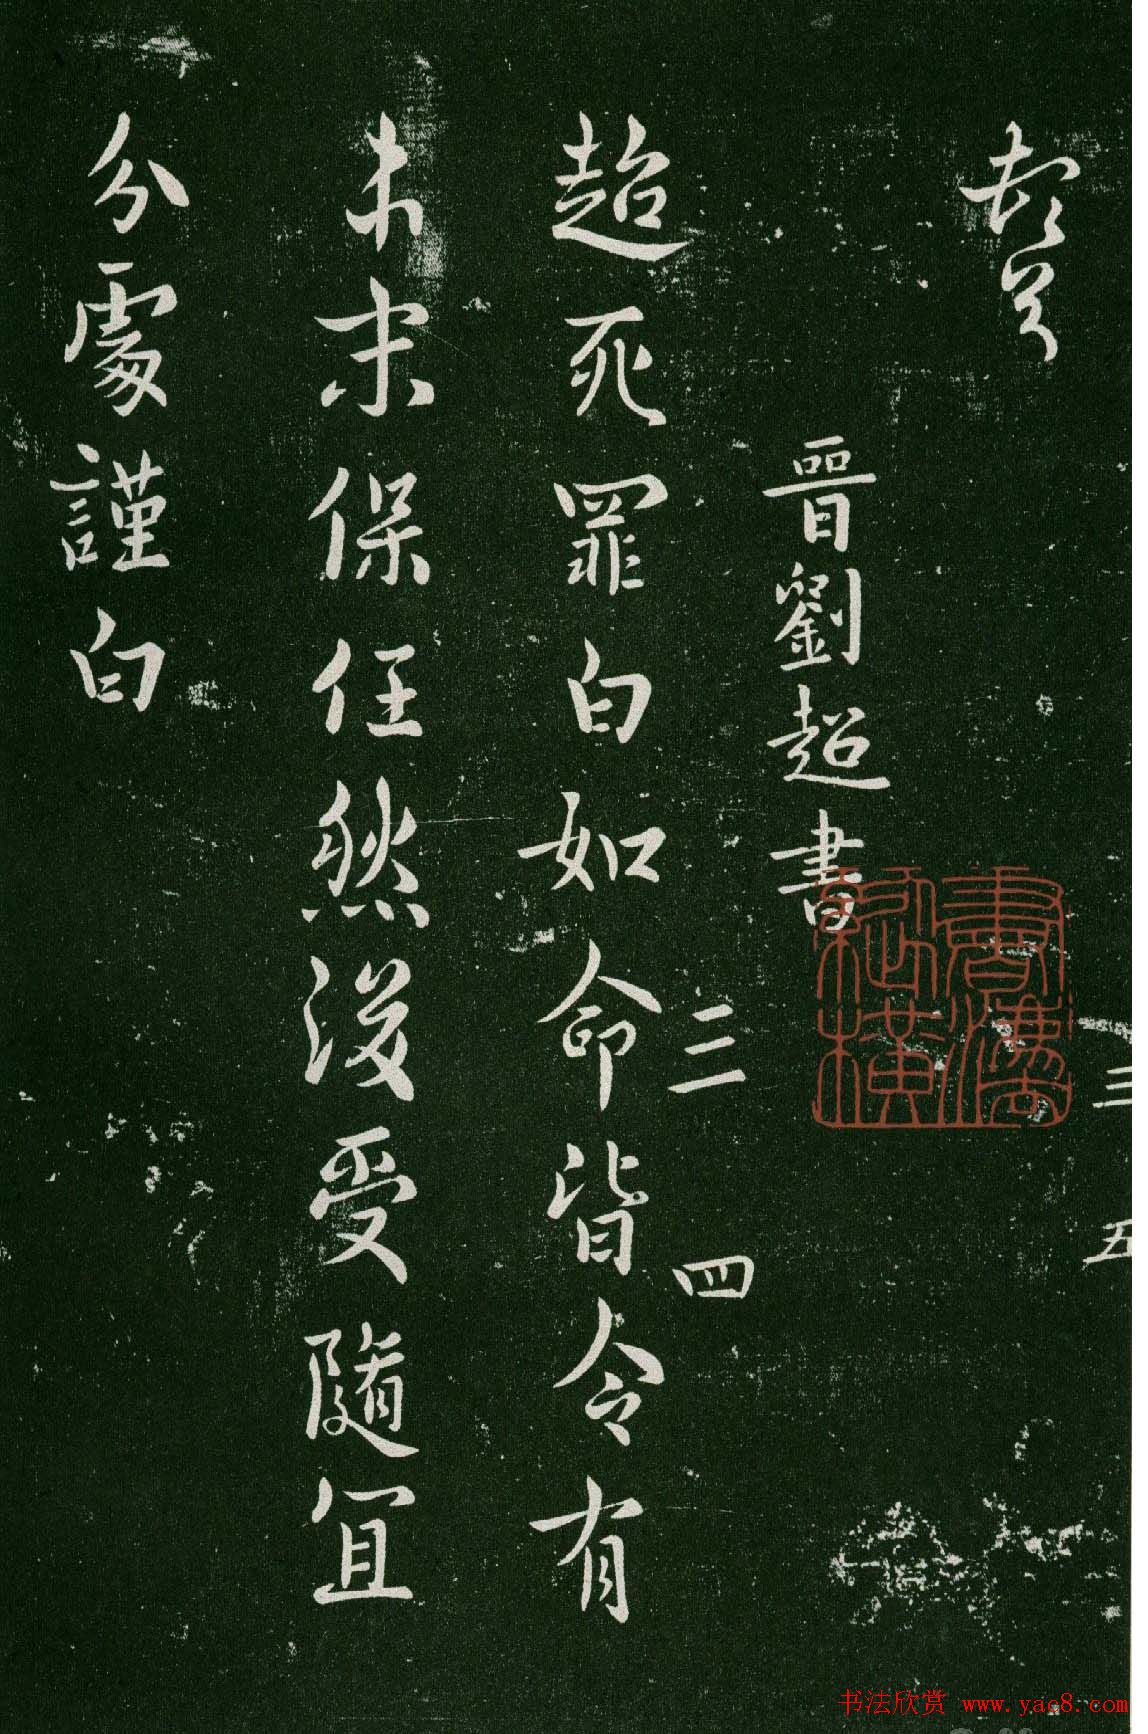 三 五
晉劉超書
三 四
超死罪白如命皆令有
本末保任然後受隨宜
分處謹白
书法欣赏 www.yac8.com